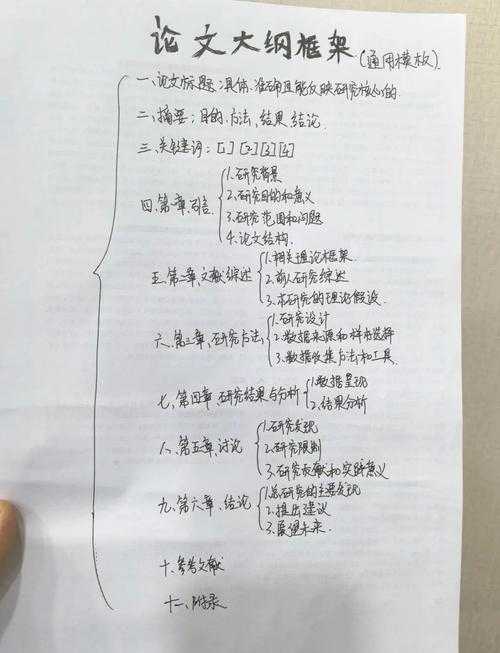 论文大纲框架(通用模板)
一、论文标题:具体、准确且能反映研究核心的
二、摘要:目的、方法、结果、结论
三、关键词:[1][2][3][4]
四、第一章、引言
1.研究背景
2.研究目的和意义
3.研究范围和问题
4.论文结构.
五、第二章、文献综述
1.相关理论框架.
2.前人研究综述
3.本研究的理论假设.
六、第三章、研究方法
1.研究设计
2.数据来源和样本选择
3.数据收集方法和工具.
七、第四章 研究结果与分析
1.数据呈现
2.结果分析
八、第五章、讨论
1.研究发现
2.研究限制
3.研究贡献和实际意义
九、第六章、结论
1.总研究的主要发现
2.提出建议
3.展望未来.
十、参考文献
十一、附录